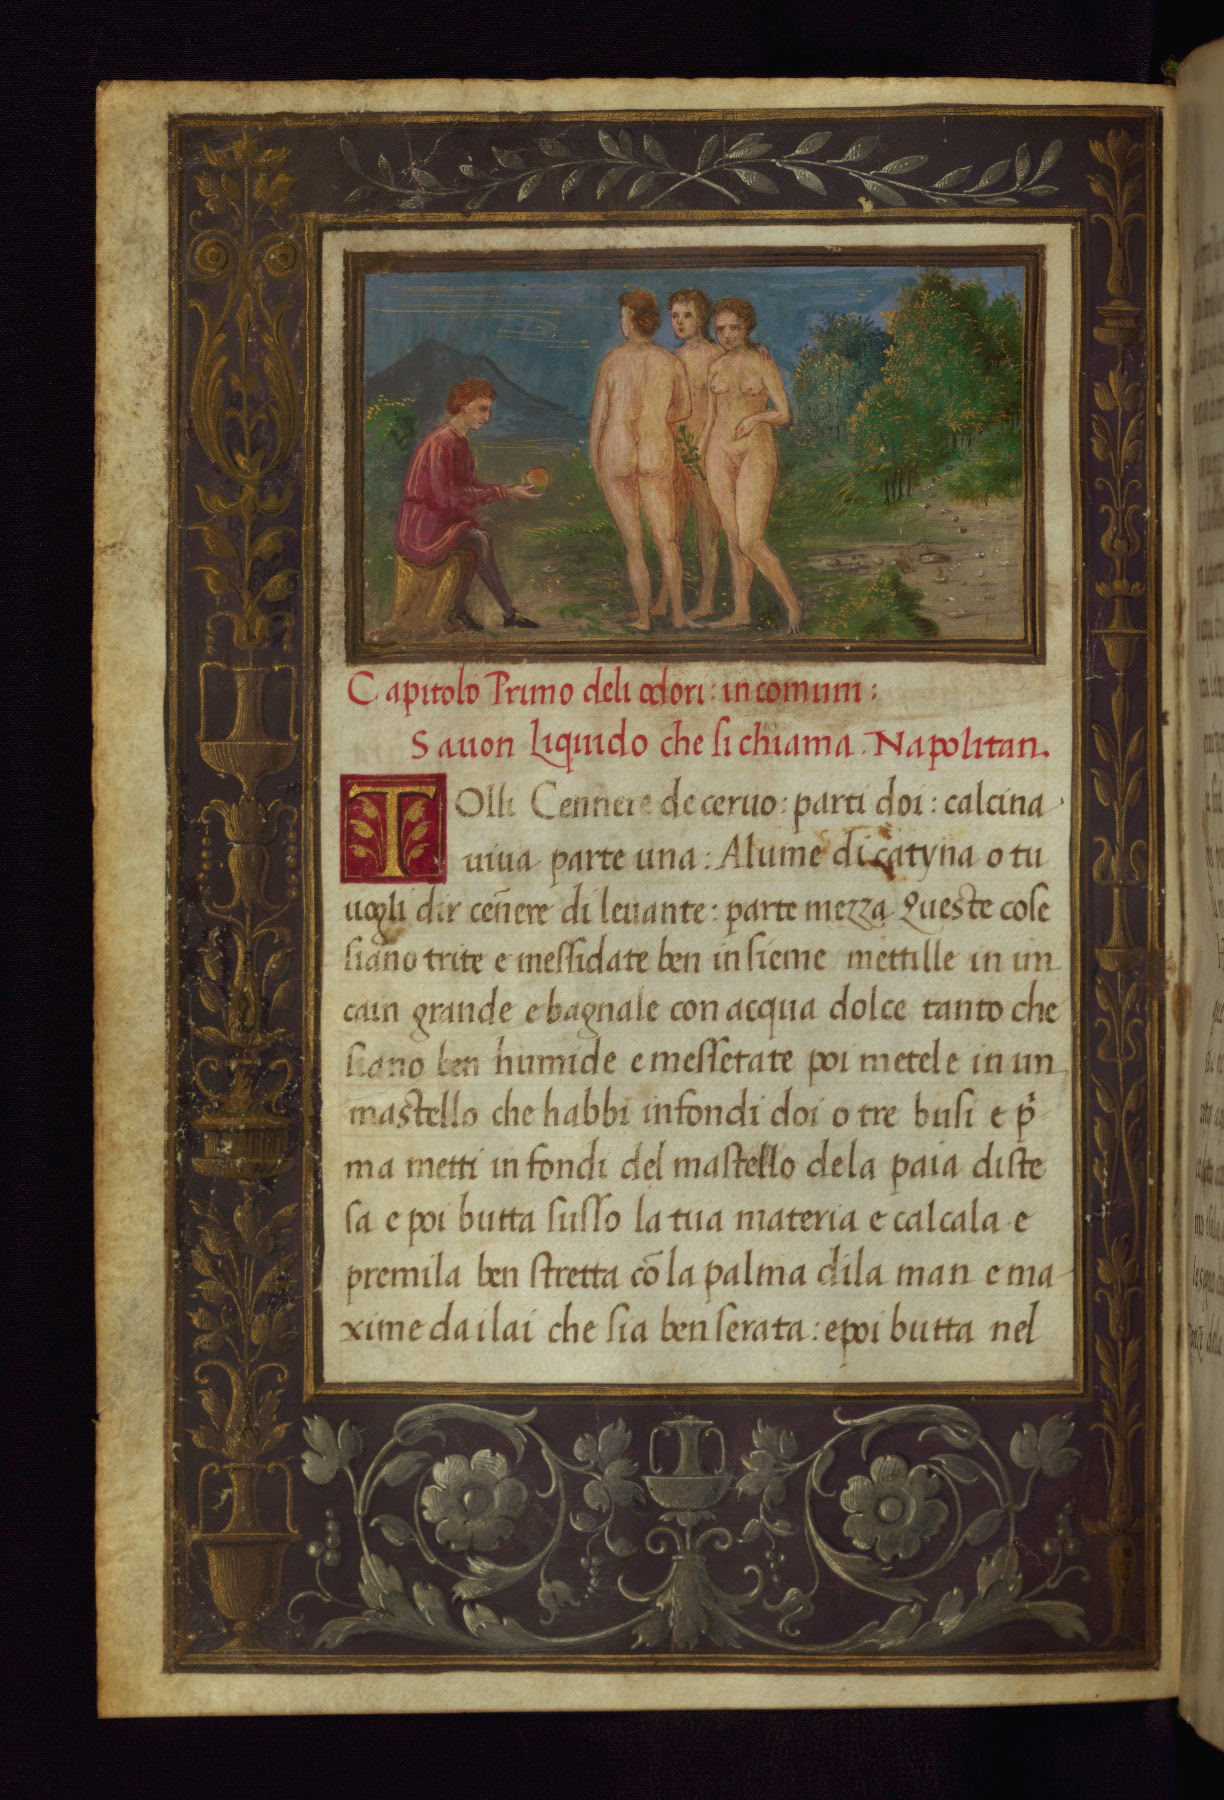 Capitolo Primo deli odori : in comum :
Sauon Liquido che si chiama . Napolitan.
TOlli Cennere de ceruo : parti doi : calcina
uiua parte una : Alume di catyna o tu
uogli dir cen̄ere di leuante : parte mezza Queste cose
siano trite e messidate ben insieme mettille in un
cain grande e bagnale con acqua dolce tanto che
siano ben humide e messetate poi metele in un
mastello che habbi infondi doi o tre busi e p̄
ma metti in fondi del mastello dela paia diste
sa e poi butta susso la tua materia e calcala e
premila ben stretta cō la palma dila man e ma-
xime dai lai che sia ben serata : e poi butta nel